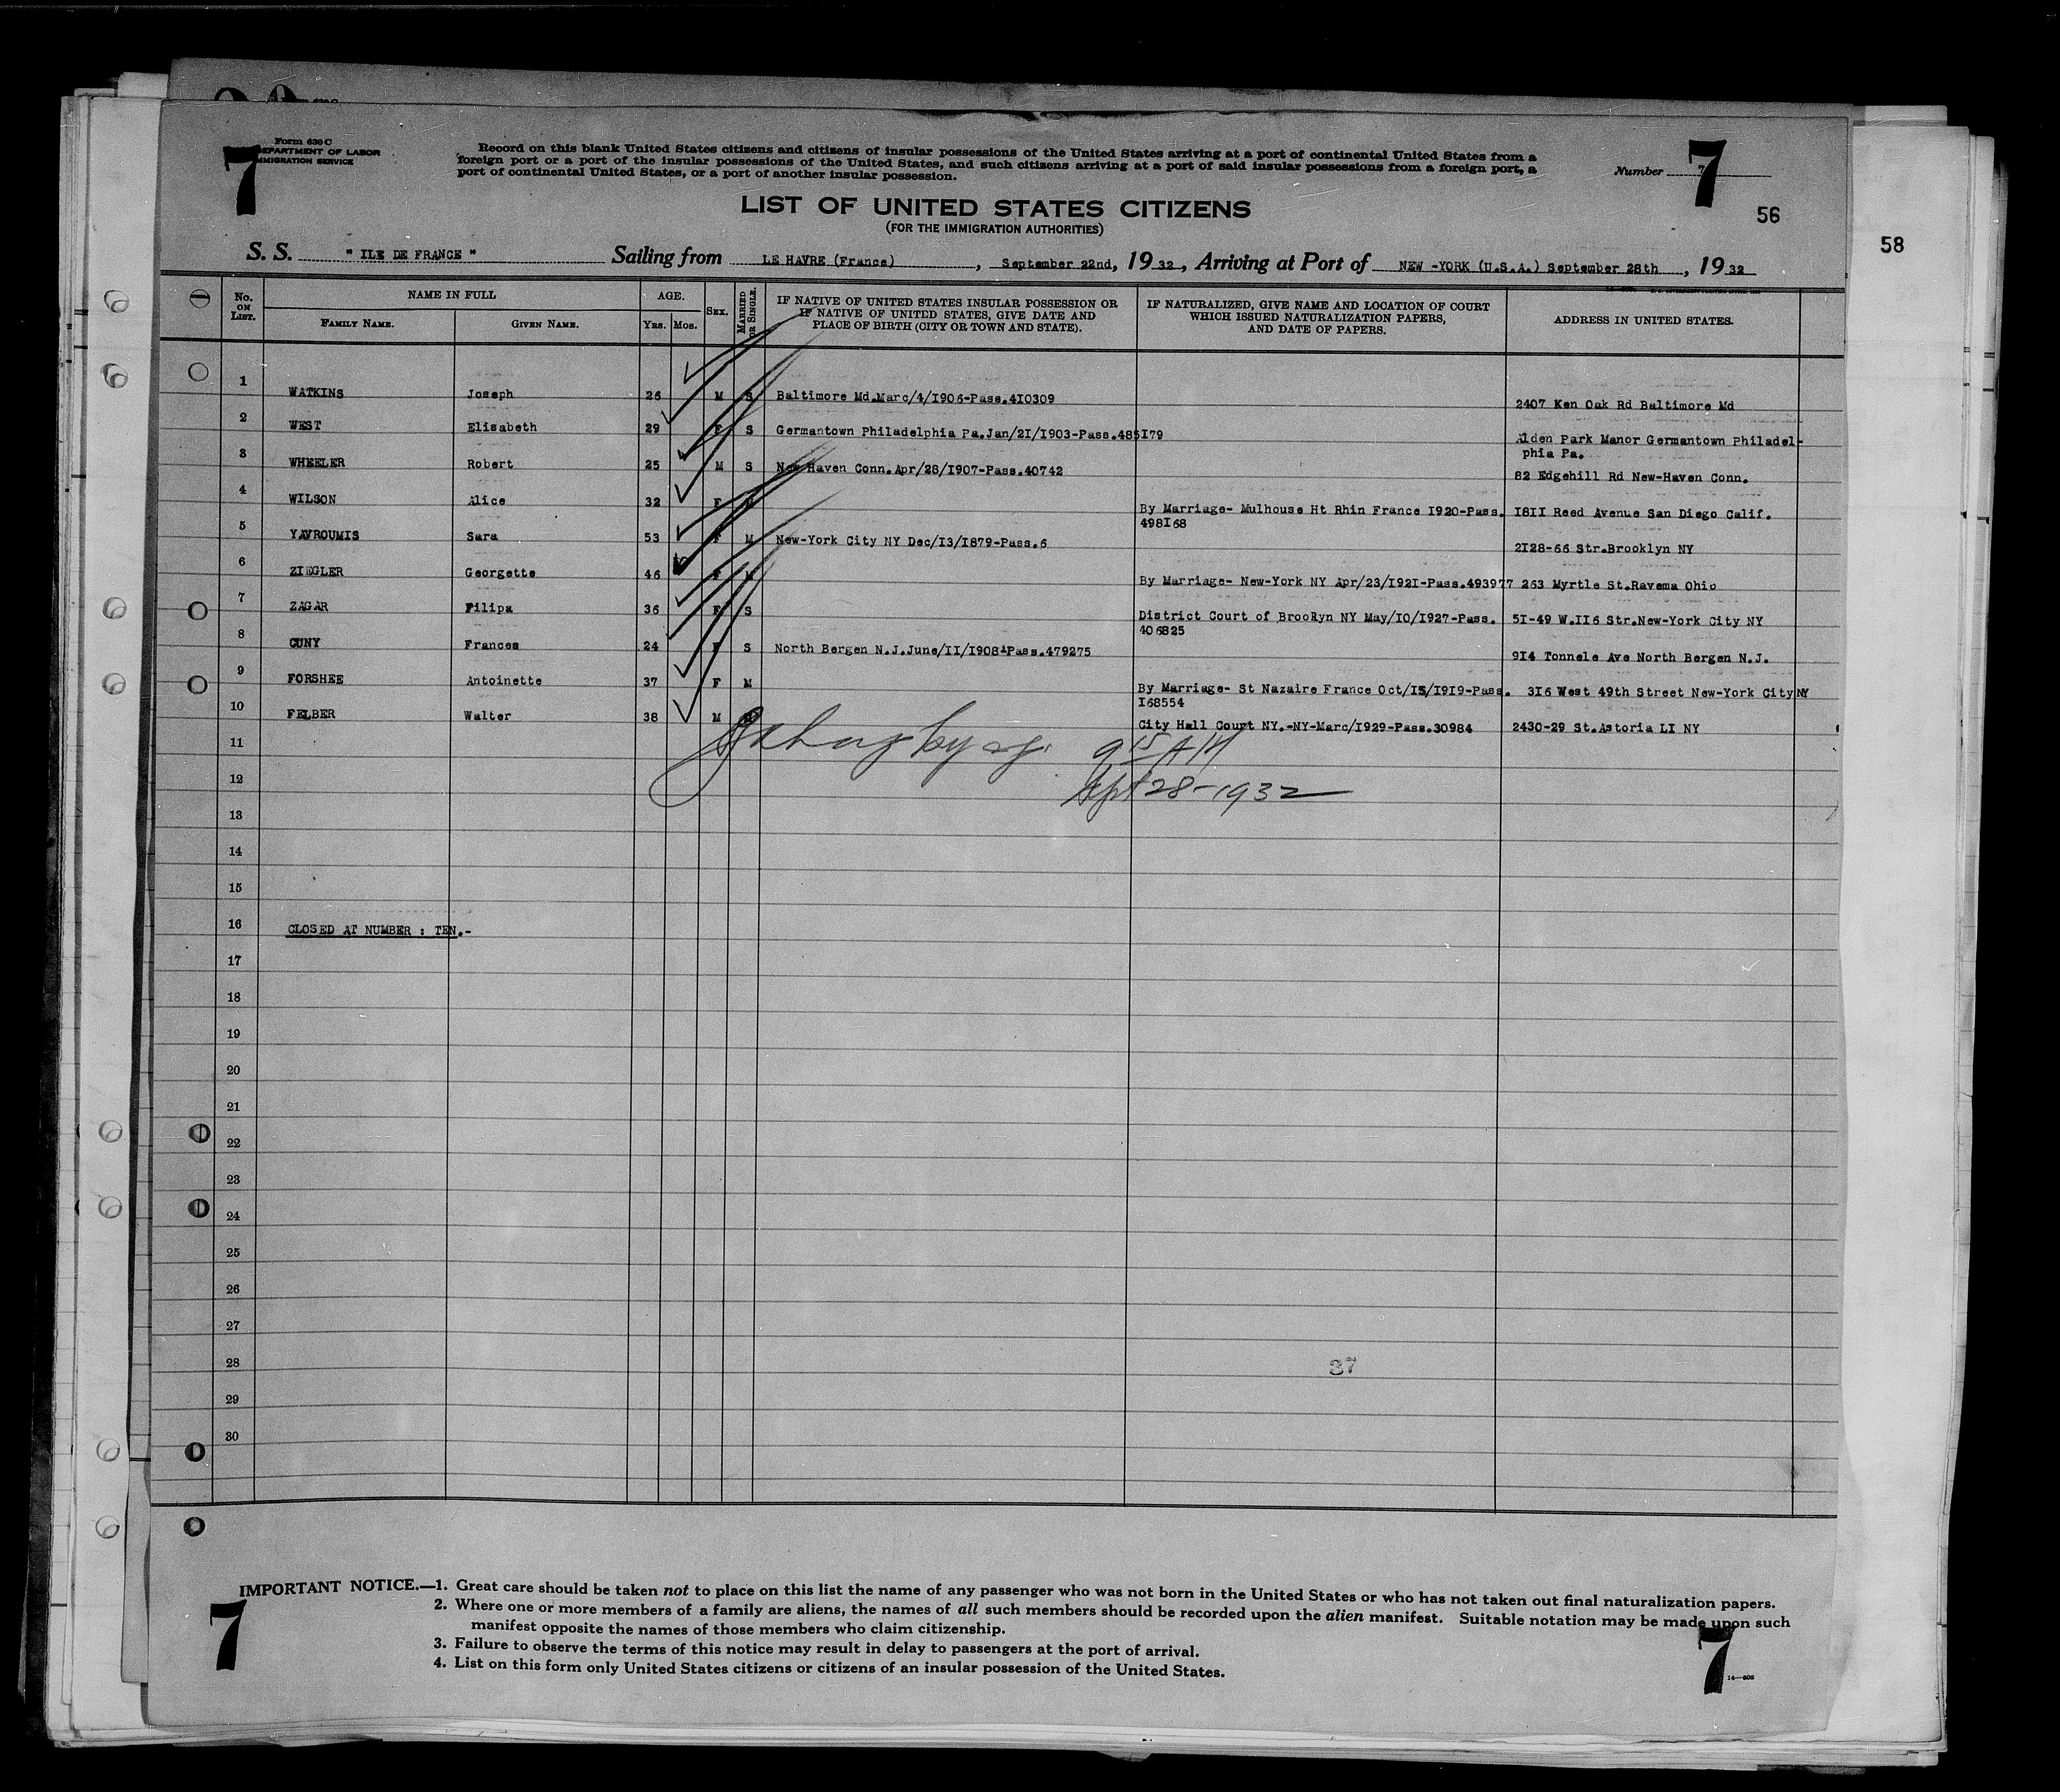 Form 630 C
DEPARTMENT OF LABOR
IMMIGRATION SERVICE
7
Record on this blank United States citizens and citizens of insular possessions of the United States arriving at a port of continental United States from a
foreign port or a port of the insular possessions of the United States, and such citizens arriving at a port of said insular possessions from a foreign port, a
port of continental United States, or a port of another insular possession.
Number 7
7
56
58
LIST OF UNITED STATES CITIZENS
(FOR THE IMMIGRATION AUTHORITIES)
S. S. " ILE DE FRANCE " Sailing from LE HAVRE (France), September 22nd, 1932, Arriving at Port of NEW -YORK (U.S.A.) September 28th, 1932
No. ON LIST. NAME IN FULL AGE. SEX. MARRIED OR SINGLE. IF NATIVE OF UNITED STATES INSULAR POSSESSION OR IF NATIVE OF UNITED STATES, GIVE DATE AND PLACE OF BIRTH (CITY OR TOWN AND STATE). IF NATURALIZED, GIVE NAME AND LOCATION OF COURT WHICH ISSUED NATURALIZATION PAPERS, AND DATE OF PAPERS. ADDRESS IN UNITED STATES.
FAMILY NAME. GIVEN NAME. YRS. MOS.
1 WATKINS Joseph 26 M S Baltimore Md.Marc/4/I906-Pass.4I0309 2407 Ken Oak Rd Baltimore Md
2 WEST Elisabeth 29 F S Germantown Philadelphia Pa.Jan/2I/I903-Pass.485I79 Alden Park Manor Germantown Philadel-
phia Pa.
3 WHEELER Robert 25 M S New Haven Conn.Apr/28/I907-Pass.40742 82 Edgehill Rd New-Haven Conn.
4 WILSON Alice 32 F By Marriage- Mulhouse Ht Rhin France I920-Pass. I8II Reed Avenue San Diego Calif.
498I68
5 YAVROUMIS Sara 53 F M New-York City NY Dec/I3/I879-Pass.6 2I28-66 Str.Brooklyn NY
6 ZIEGLER Georgette 46 F M By Marriage- New-York NY Apr/23/I92I-Pass.493977 263 Myrtle St.Ravema Ohio
7 ZAGAR Filipa 36 F S District Court of Brooklyn NY May/I0/I927-Pass. 5I-49 W.II6 Str.New-York City NY
406825
8 CUNY Frances 24 F S North Bergen N.J.June/II/I908-Pass.479275 9I4 Tonnele Ave North Bergen N.J.
9 FORSHEE Antoinette 37 F M By Marriage- St Nazaire France Oct/I5/I9I9-Pass. 3I6 West 49th Street New-York City NY
I68554
10 FELBER Walter 38 M City Hall Court NY.-NY-Marc/I929-Pass.30984 2430-29 St.Astoria LI NY
11
9 15 AM
12
Sept 28-1932
13
14
15
16 CLOSED AT NUMBER : TEN.-
17
18
19
20
21
22
23
24
25
26
27
28 37
29
30
IMPORTANT NOTICE.—1. Great care should be taken not to place on this list the name of any passenger who was not born in the United States or who has not taken out final naturalization papers.
2. Where one or more members of a family are aliens, the names of all such members should be recorded upon the alien manifest. Suitable notation may be made upon such
manifest opposite the names of those members who claim citizenship.
3. Failure to observe the terms of this notice may result in delay to passengers at the port of arrival.
4. List on this form only United States citizens or citizens of an insular possession of the United States.
7
7
14—608